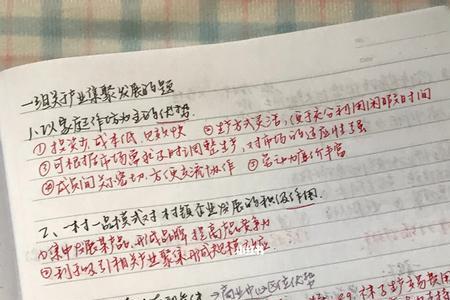 一、相关产业集聚发展的题
1、以家庭作坊为主的优势.
①投资少,成本低,见效快 ②生产方式灵活,便于充分利用闲暇时间
③可根据市场需求及时调整生产,对市场的适应性强
④成员间关系密切,方便交流协作 ⑤劳动力廉价丰富
2、一村一品模式对村镇企业发展的积极作用.
①集中发展某产品,形成品牌,提高竞争力
②利于吸引相关产业聚集形成规模效应